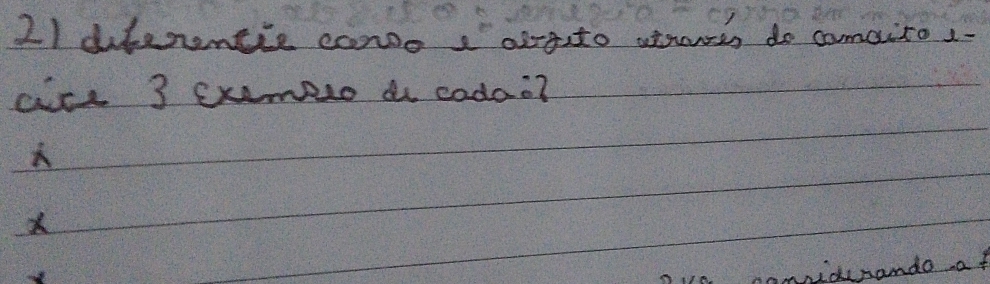 2) diferencie corpo e objeto através do conceito e-
cite 3 exemplo de cada:?
x
x
x
considerando a f